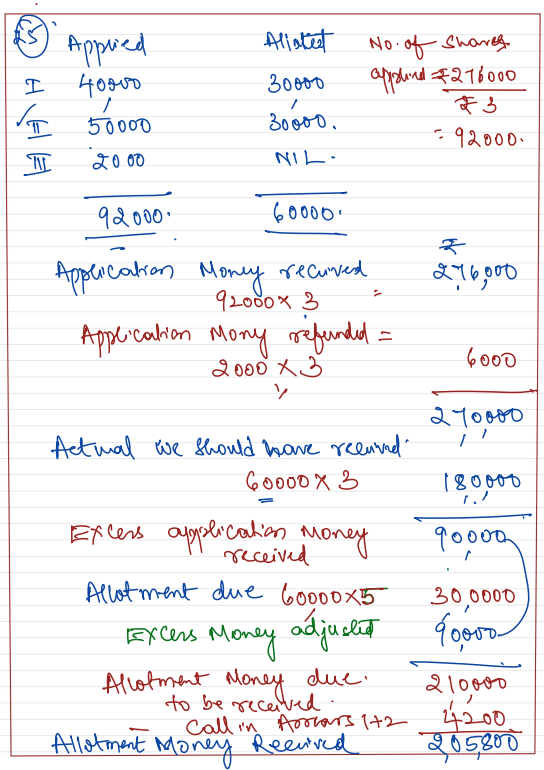 25 Applied Alloted No. of Shares
applied = ₹276000
₹ 3
= 92000.
I 40000 30000
II 50000 30000.
III 2000 NIL.
92000. 60000.
₹
Application Money received 276,000
92000 × 3 =
Application Mony refunded =
2000 × 3 6000
270000
Actual we should have received.
60000 × 3 180,000
Excess application Money 90000
received
Allotment due 60000×5 300000
Excess Money adjusted 90,000
Allotment Money due. 210000
to be received.
— Call in Arrears 1+2 4200
Allotment Money Received 2,05,800